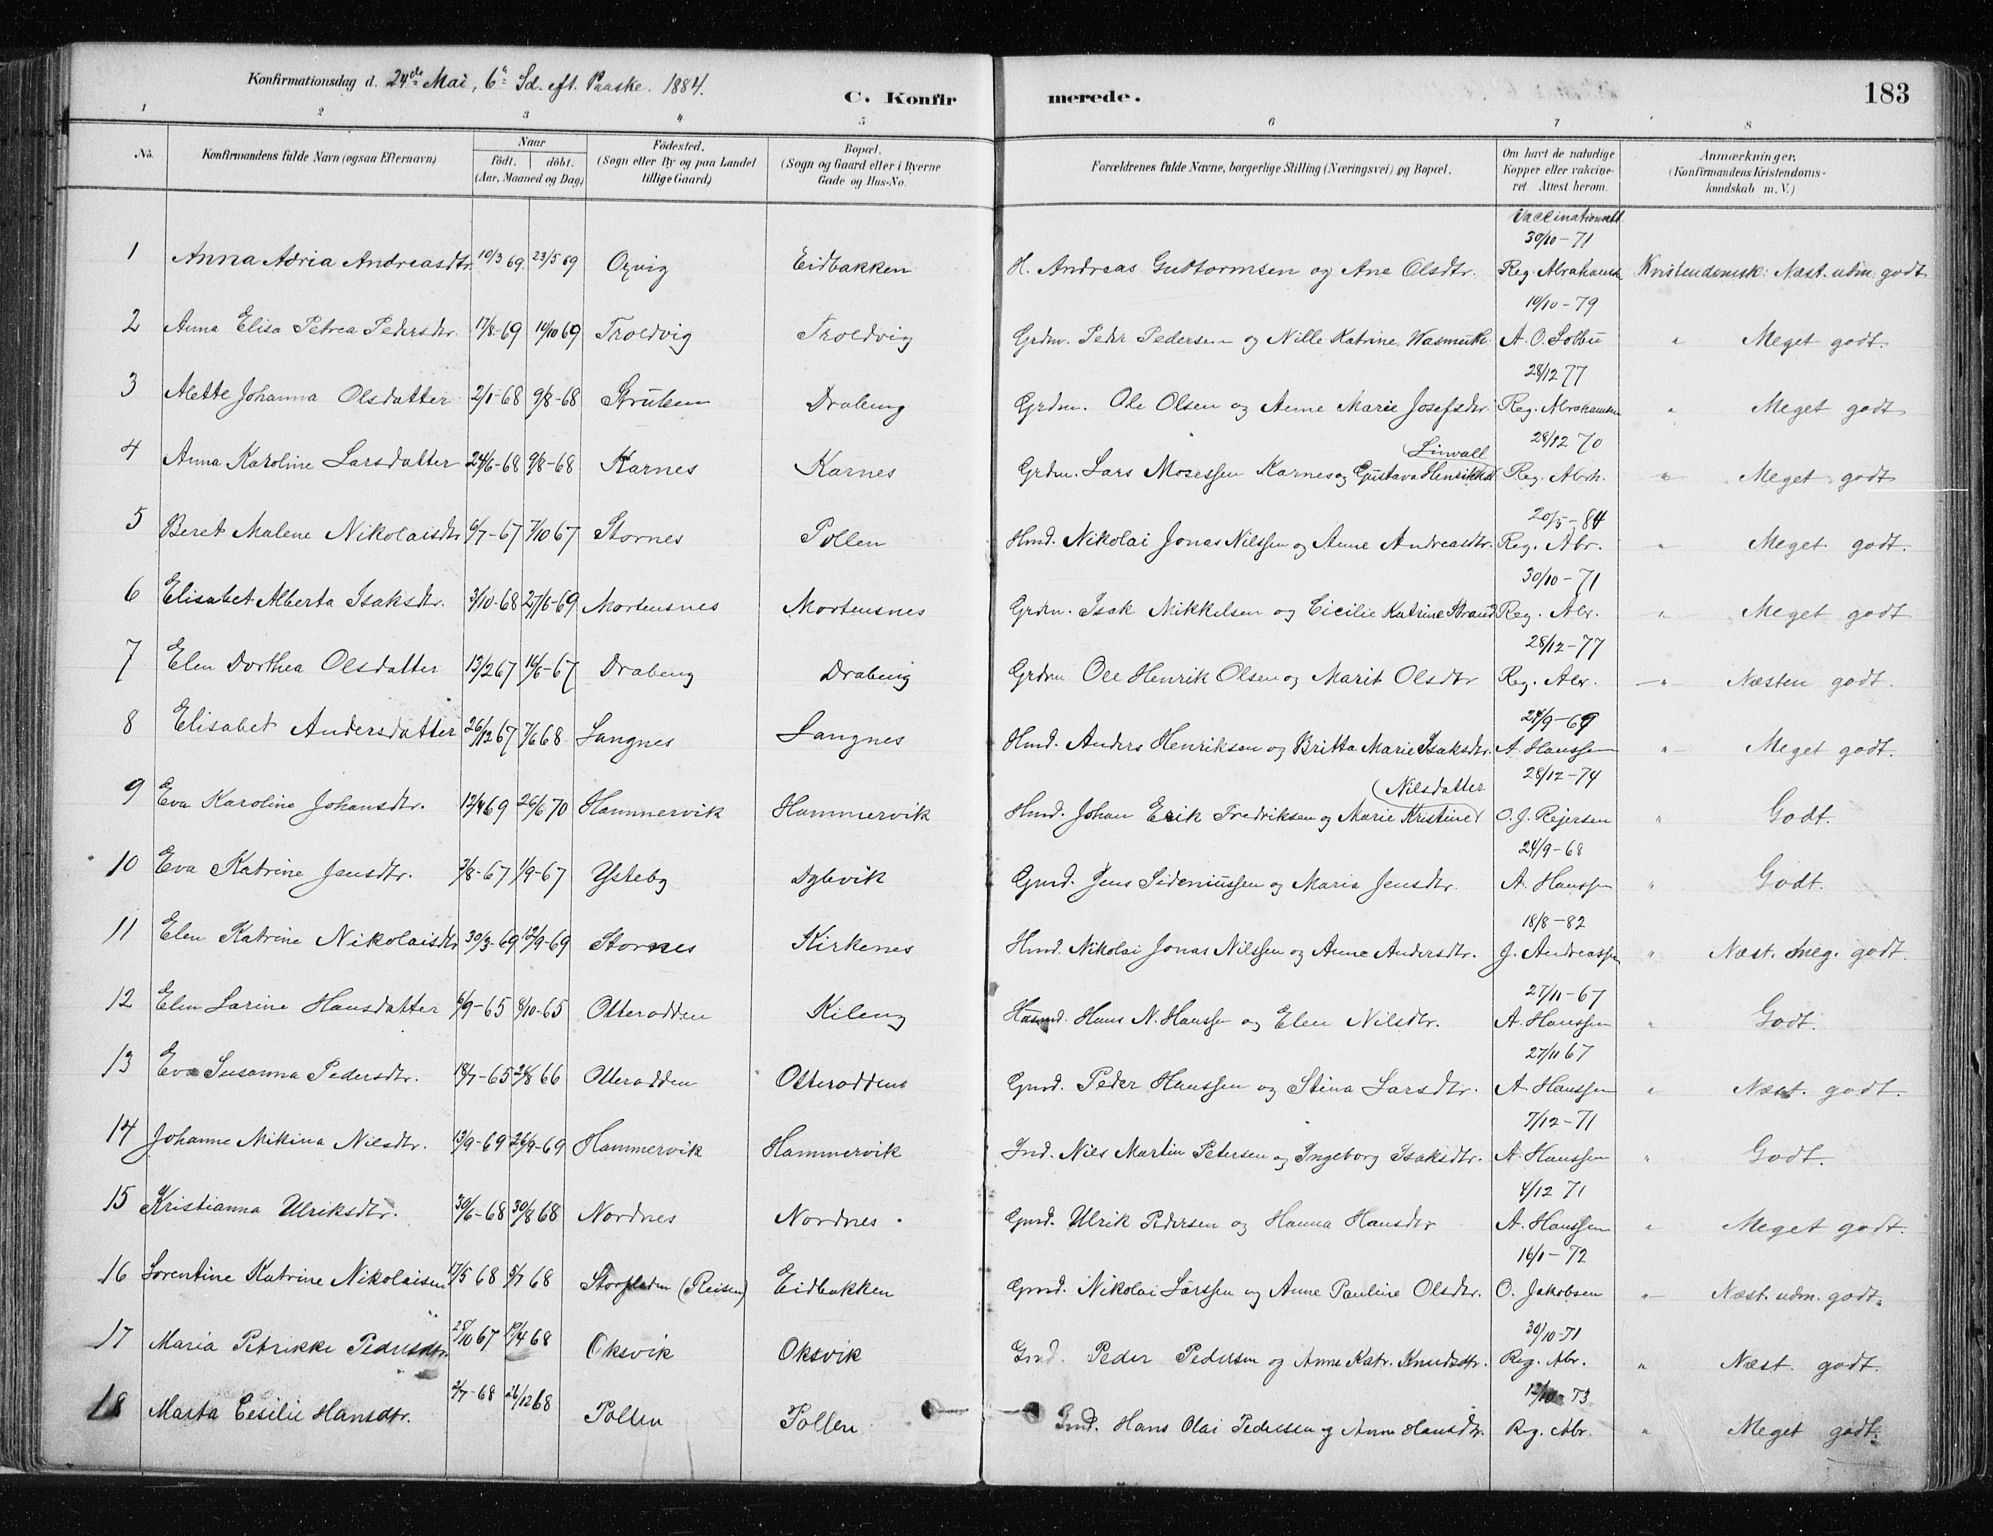 Konfirmationsdag d. 24de Mai, 6te Sd. eft. Paaske. 1884.
C. Konfir merede. 183
1 2 3 4 5 6 7 8
No. Konfirmandens fulde Navn (ogsaa Efternavn) Naar født. døbt. (Aar, Maaned og Dag) Fødested. (Sogn eller By og paa Landet tillige Gaard) Bopæl. (Sogn og Gaard eller i Byerne Gade og Hus-No. Forældrenes fulde Navne, borgerlige Stilling (Næringsvei) og Bopæl. Om havt de naturlige Kopper eller vakcineret. Attest herom. Anmærkninger. (Konfirmandens Kristendomskundskab m. V.)
Vaccinationsatt
30/10-71
1 Anna Adria Andreasdtr. 10/3 69. 23/5 69 Oxvig Eidbakken H. Andreas Guttormsen og Ane Olsdtr. Reg. Abrahams Kristendomsk: Næst. udm. godt
10/10-79
2 Anna Elisa Petrea Pedersdtr. 17/8-69 10/10 69 Troldvig Troldvig Grdm. Peder Pedersen og Nille Katrine Wasmuth. A. O. Solbu " Meget godt.
28/12 77
3 Alette Johanna Olsdatter 2/1-68 9/8-68 Strüben Drabeng Grdm. Ole Olsen og Anne Marie Josefsdtr. Reg. Abrahamsen " Meget godt
Linvall 28/12 70
4 Anna Karoline Larsdatter 24/6-68 9/8-68 Karnes Karnes Grdm. Lars Mosessen Karnes og Gustava Henrikka Reg. Abrh. " Meget godt
20/5-84
5 Beret Malene Nikolaisdtr 6/7-67 7/10 67 Stornes Pollen Hmd. Nikolai Jonas Nilssen og Anne Andreasdtr. Reg. Abr. " Meget godt.
30/10-71
6 Elisabet Alberta Isaksdtr. 3/10-68 27/6-69 Mortensnes Mortensnes Grdm. Isak Mikkelsen og Cicilie Katrine Strand Reg. Abr. " Meget godt
28/12-77
7 Elen Dorthea Olsdatter 13/2 67 16/6-67 Drabeng Drabeng Grdm Ole Henrik Olsen og Marit Olsdtr Reg. Abr. " Næsten godt.
24/9-69
8 Elisabet Andersdatter 26/12 67 7/6 68 Langnes Langnes Hmd. Anders Henriksen og Britta Marie Isaksdtr. A. Hanssen " Meget godt.
Nilsdatter 28/12-74
9 Eva Karoline Johansdtr. 12/4 69 26/6 70 Hammervik Hammervik Hmd. Johan Erik Fredriksen og Marie Kristine O. J. Rejersen " Godt.
24/9-68
10 Eva Katrine Jensdtr. 3/8-67 1/9-67 Ysteby Dybvik Gmd. Jens Sideniussen og Maria Jensdtr. A. Hanssen " Godt.
18/8-82
11 Elen Katrine Nikolaisdtr 30/3-69 12/9-69 Stornes Kirkenes Hmd. Nikolai Jonas Nilssen og Anne Andersdtr. J. Andreassen " Næst. meg. godt.
27/11-67
12 Elen Larine Hansdatter 6/9-65 8/10-65 Otterodden Kileng Husmd. Hans N. Hanssen og Elen Nilsdtr. A. Hanssen " Godt.
27/11 67
13 Eva Susanna Pedersdtr. 18/7-65 26/8 66 Otterodden Otterodden Gmd. Peder Hanssen og Stina Larsdtr. A. Hanssen " Næst. godt.
7/12-71
14 Johanne Mikina Nilsdtr. 13/9-69 26/9-69 Hammervik Hammervik Ind. Nils Martin Petersen og Ingeborg Isaksdtr. A. Hanssen " Godt.
4/12 71
15 Kristianna Ulriksdtr. 30/6-68 30/8 68 Nordnes Nordnes. Gmd. Ulrik Pedersen og Hanna Hansdtr A. Hanssen " Meget godt.
16/1-72
16 Lorentine Katrine Nikolaisen 17/5 68 5/7 68 (Reisen) Eidbakken Gmd. Nikolai Larssen og Anne Pauline Olsdtr. O. Jakobsen " Næst. udm. godt.
30/10-71
17 Maria Petrikke Pedersdtr. 28/10 67 19/4 68 Oksvik Oksvik Gmd. Peder Pedersen og Anne Katr. Knudsdtr. Reg. Abr. " Næst. godt.
12/10-73
18 Marta Cesilie Hansdtr. 2/7-68 26/12 68 Pollen Pollen Gmd. Hans Olai Pedersen og Anne Hansdtr. Reg. Abr. " Meget godt.